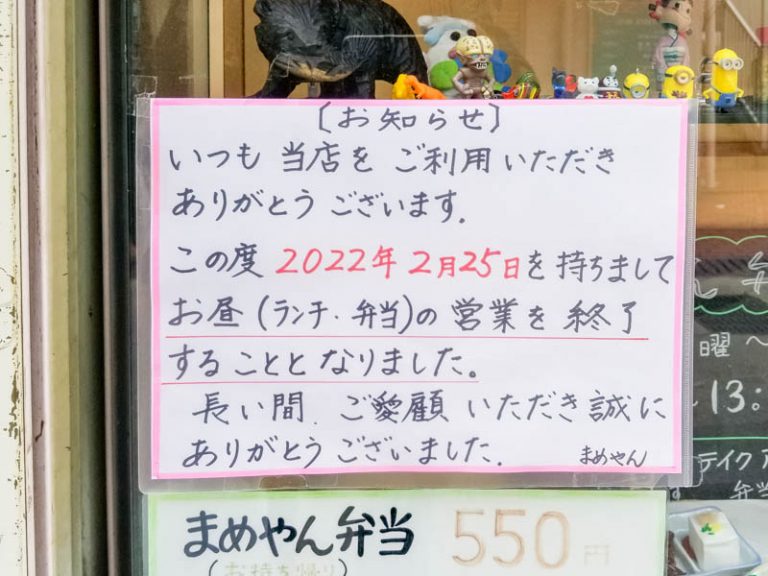 〔お知らせ〕
いつも 当店を ご利用いただき
ありがとう ございます.
この度 2022年 2月25日を 持ちまして
お昼 (ランチ・弁当)の 営業を 終了
することと なりました。
長い間. ご愛顧 いただき 誠に
ありがとう ございました.
まめやん
まめやん弁当 550円
(お持ち帰り)
曜 〜
13:
テイクア
弁当